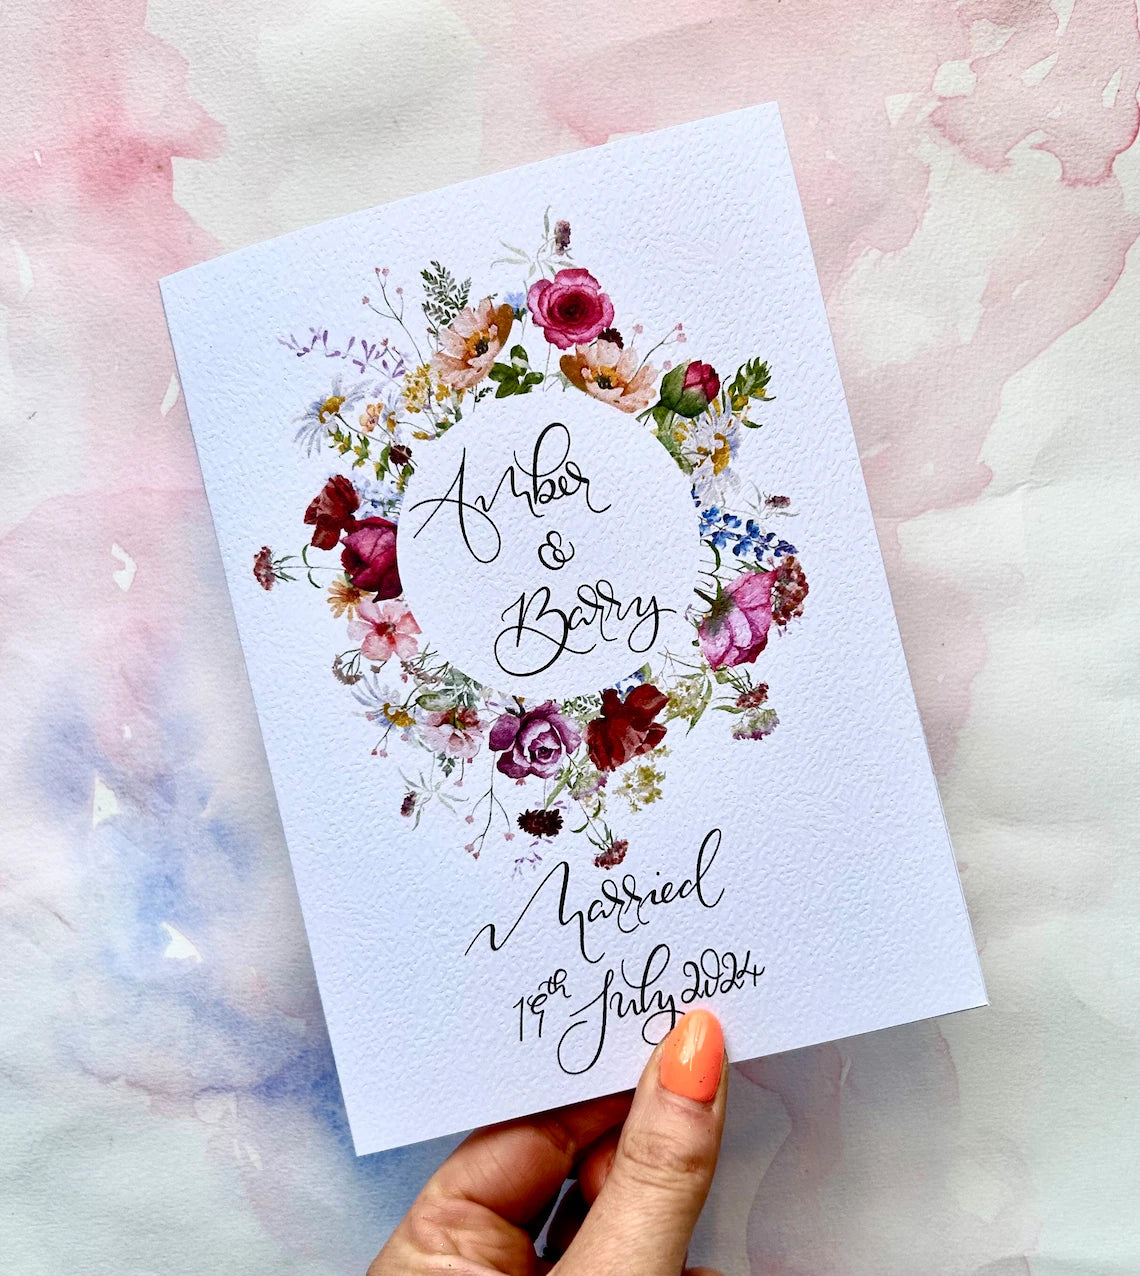 Amber
&
Barry
Married
19th July 2024